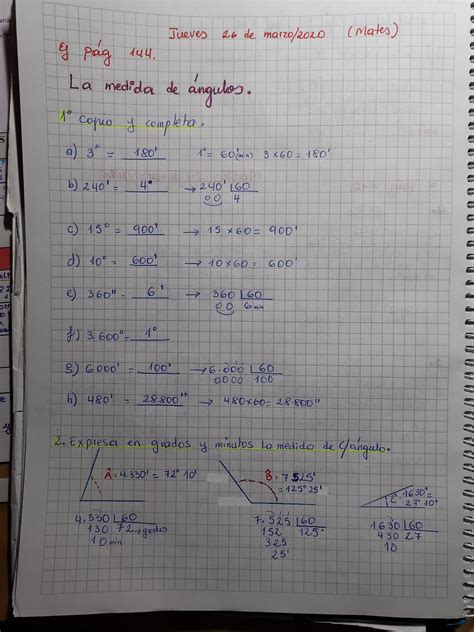 Jueves 26 de marzo/2020 (Mates)
Ej pág 144.
La medida de ángulos.
1º Copia y completa.
a) 3° = 180' 1° = 60'(min) 3x60 = 180'
b) 240' = 4° → 240' 60
00 4
c) 15° = 900' → 15 x 60 = 900'
d) 10° = 600' → 10x60 = 600'
e) 360" = 6' → 360 60
00 6 min
f) 3.600" = 1°
g) 6000' = 100° → 6.000 60
0000 100
h) 480' = 28.800" → 480x60 = 28.800"
2. Expresa en grados y minutos la medida de c/ángulo.
Â: 4.330' = 72° 10'
B̂: 7525'
= 125° 25'
Ĉ: 1630' =
27° 10'
4.330 60
130 72 → grados
10 min
7.525 60
152 125°
325
25'
1630 60
430 27
10